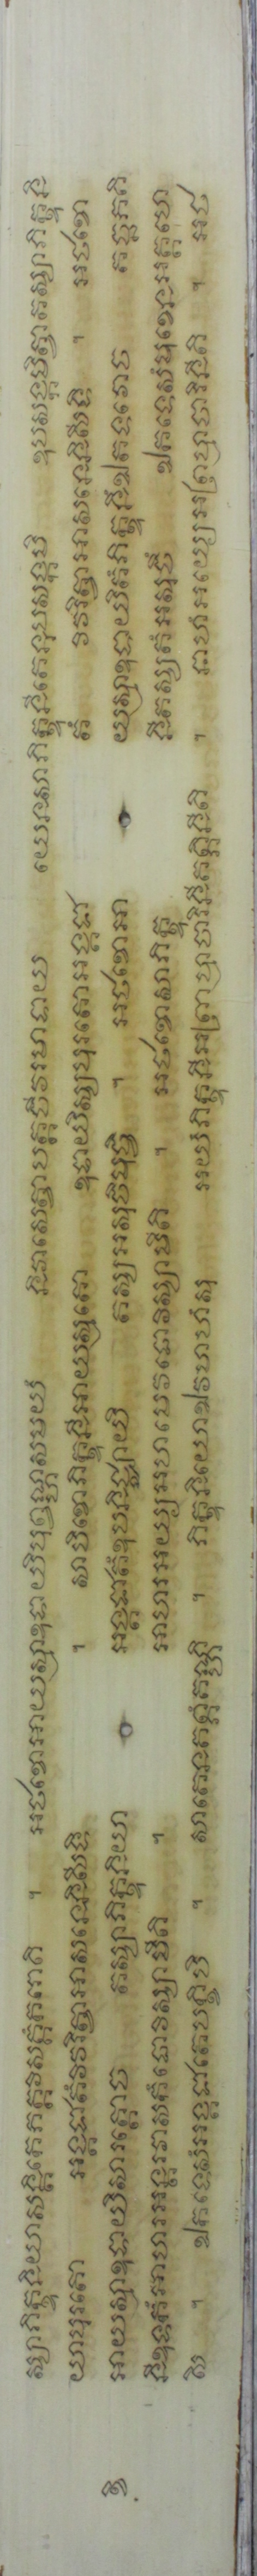 ស្សាភិក្ខុនិយាសន្តិកេភត្តវិសគ្គំករោតិ ។ អថខោអាយស្មាឧទាយិបុព្វណ្ហសមយំ និវាសេត្វាបត្តចីវរមាទាយ យេនសាភិក្ខុនីតេនុបសង្កមិ ឧបសង្កមិត្វាតស្សាភិក្ខុនិ
យាបុរតោ អង្គជាតំវិវរិត្វាអាសនេនិសីទិ ។ សាបិខោភិក្ខុនីអាយស្មតោ ឧទាយិស្សបុរតោអង្គជា តំ វិវរិត្វាអាសនេនិសីទិ ។ អថខោ
ខិ អាយស្មាឧទាយិសារត្តោច តស្សាភិក្ខុនិយា អង្គជាតំឧបនិជ្ឈាយិ តស្សអសុចិមុច្ចិ ។ អថខោអា យស្មាឧទាយិតំភិក្ខុនឹឯតទវោច គច្ឆភគិ
នីឧទកំអាហរអន្តរវាសកំធោវិស្សាមីតិ ។ អាហរអយ្យអហមេវធោវិស្សាមីតិ ។ អថខោសាភិក្ខុ នីតស្សតំអសុចឹ ឯកទេសំមុខេនអគ្គហេ
សិ ។ ឯកទេសំអង្គជាតេបក្ខិបិ ។ សាតេនគព្ភំគណ្ហិ ។ ភិក្ខុនិយោឯវមាហំសុ អយំភិក្ខុនីអព្រហ្មចារិនីគព្ភិនីតិ ។ នាហំអយ្យេអព្រហ្មចារិនីតិ ។ អថ